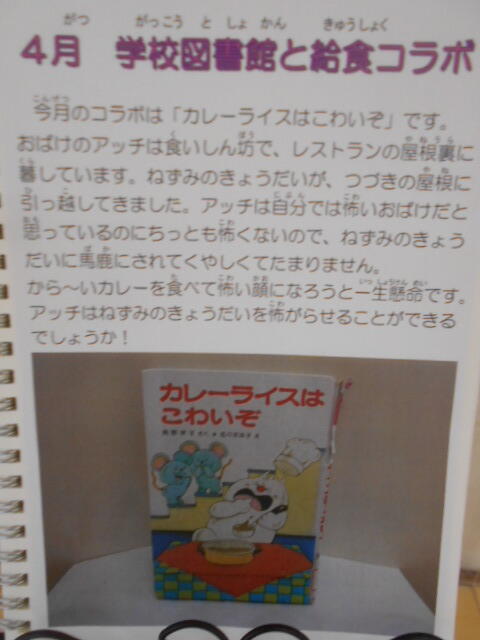 ４月　学校図書館と給食コラボ
今月のコラボは「カレーライスはこわいぞ」です。
おばけのアッチは食いしん坊で、レストランの屋根裏に
暮しています。ねずみのきょうだいが、つづきの屋根に
引っ越してきました。アッチは自分では怖いおばけだと
思っているのにちっとも怖くないので、ねずみのきょう
だいに馬鹿にされてくやしくてたまりません。
から～いカレーを食べて怖い顔になろうと一生懸命です。
アッチはねずみのきょうだいを怖がらせることができる
でしょうか！
カレーライスは
こわいぞ